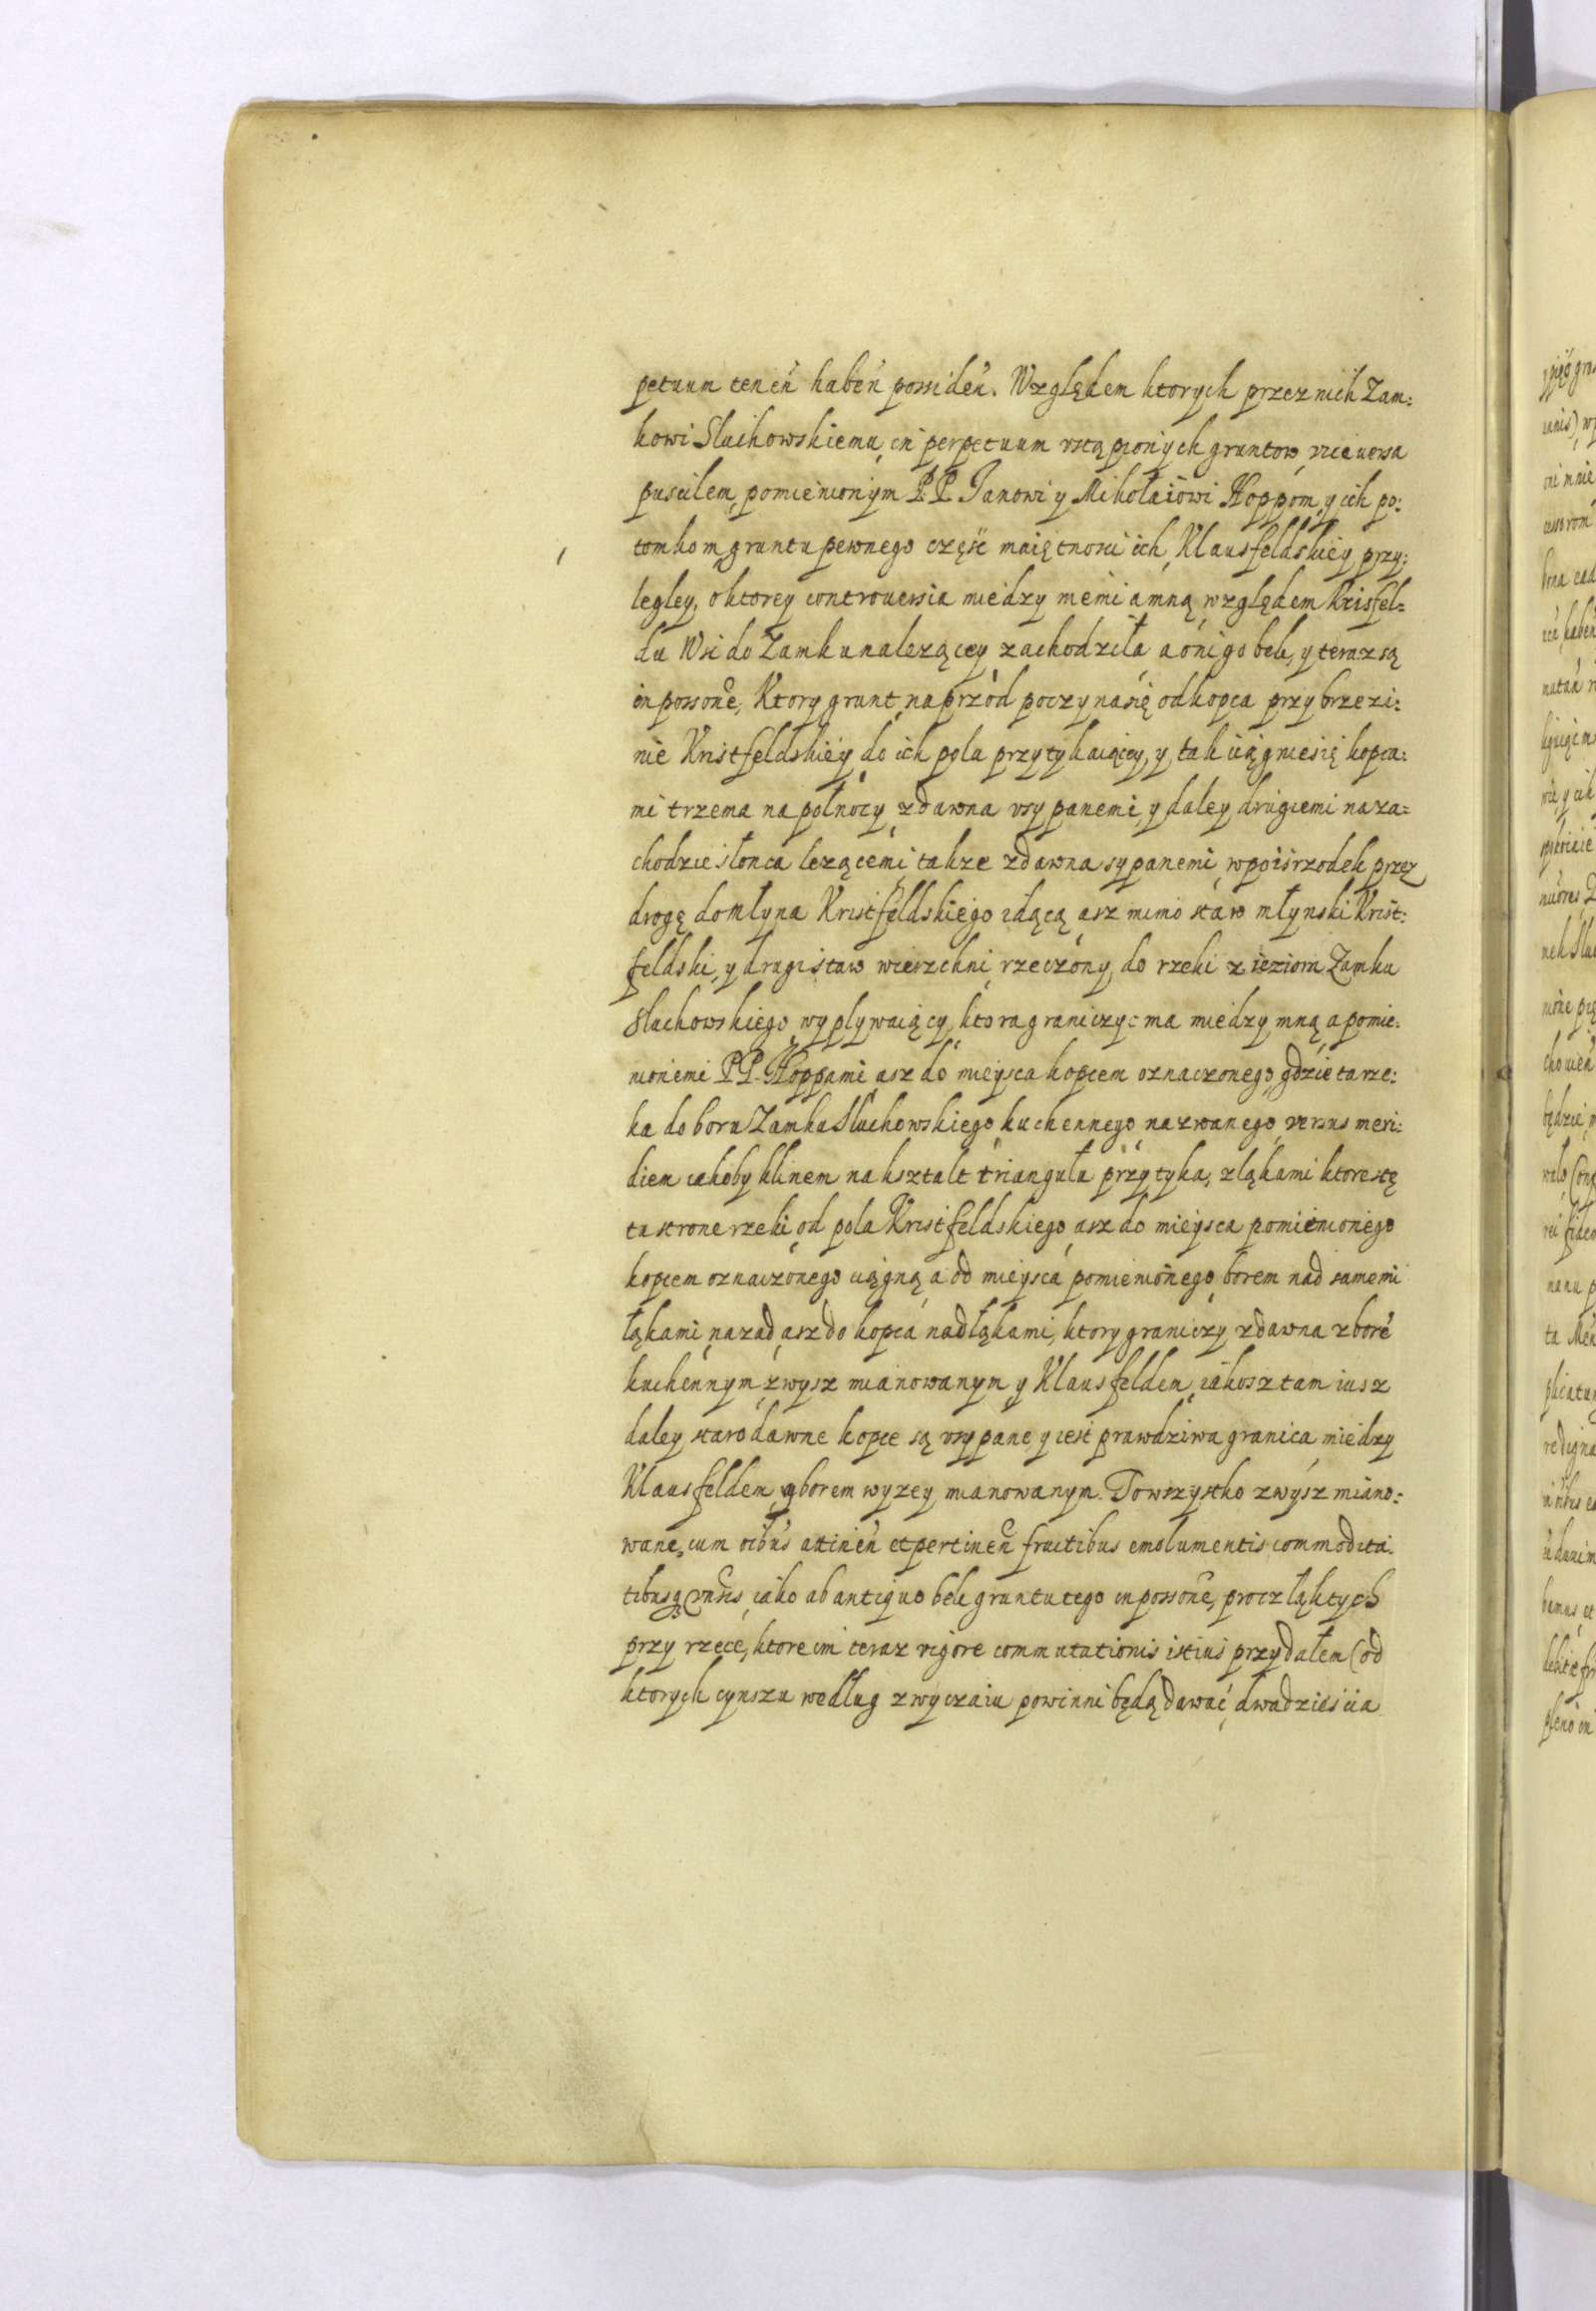 petuum teneń habeń possideń. Względem ktorych przez nich Zam:
kowi Sluchowskiemu in perpetuum vstąpionych gruntow, vice uersa
pusciłem, pomienionym P.P. Janowi y Mikołaiowi Hoppom, y ich po:
tomkom gruntu pewnego częsc maiętnosci ich Klausfeldskiey przy:
legley, o ktorey controuersia miedzy niemi a mną względem Krisfel=
du Wsi do Zamku nalezącey zachodziła, a oni go beli, y teraz są
in possone, Ktory grunt naprzod poczyna się od kopca przy brzezi:
nie Kristfeldskiey do ich pola przytykaiącey, y tak ciągnie się kopca:
mi trzema na połnocy zdawna vsypanemi, y daley drugiemi na za=
chodzie słonca lezącemi, takze zdawna sypanemi, w poisrzodek przez
drogę do młyna Kristfeldskiego idącą asz mimo staw młynski Krist:
feldski, y drugi staw wierzchni rzeczony, do rzeki z ieziora Zamku
Sluchowskiego wyplywaiącey, ktora graniczyc ma miedzy mną a pomie:
nionemi P.P. Hoppami asz do mieysca kopcem oznaczonego, gdzie ta rze:
ka do boru Zamku Sluchowskiego kuchennego nazwanego, versus meri:
diem iakoby klinem na ksztalt triangułu przytyka, z ląkami ktore s tę
ta strone rzeki od pola Kristfeldskiego asz do mieysca pomienionego
kopcem oznaczonego ciągną, a od mieysca pomienionego, borem nad samemi
łąkami nazad, asz do kopca nad łąkami, ktory graniczy zdawna z boré
kuchennym zwysz mianowanym y Klausfeldem, iakosz tam iusz
daley starodawne kopce są vsypane y iest prawdziwa granica miedzy
Klausfeldem, y borem wyzey mianowanym. To wszystko zwysz miano:
wane, cum oibus attineń et pertineń fructibus emolumentis commodita:
tibusq vnersis, iako ab antiquo beli gruntu tego in possone, procz łąk tych
przy rzece, ktore im teraz vigore commutationis istius przydałem (od
ktorych cynszu według zwyczaiu powinni będą dawać dwadziescia